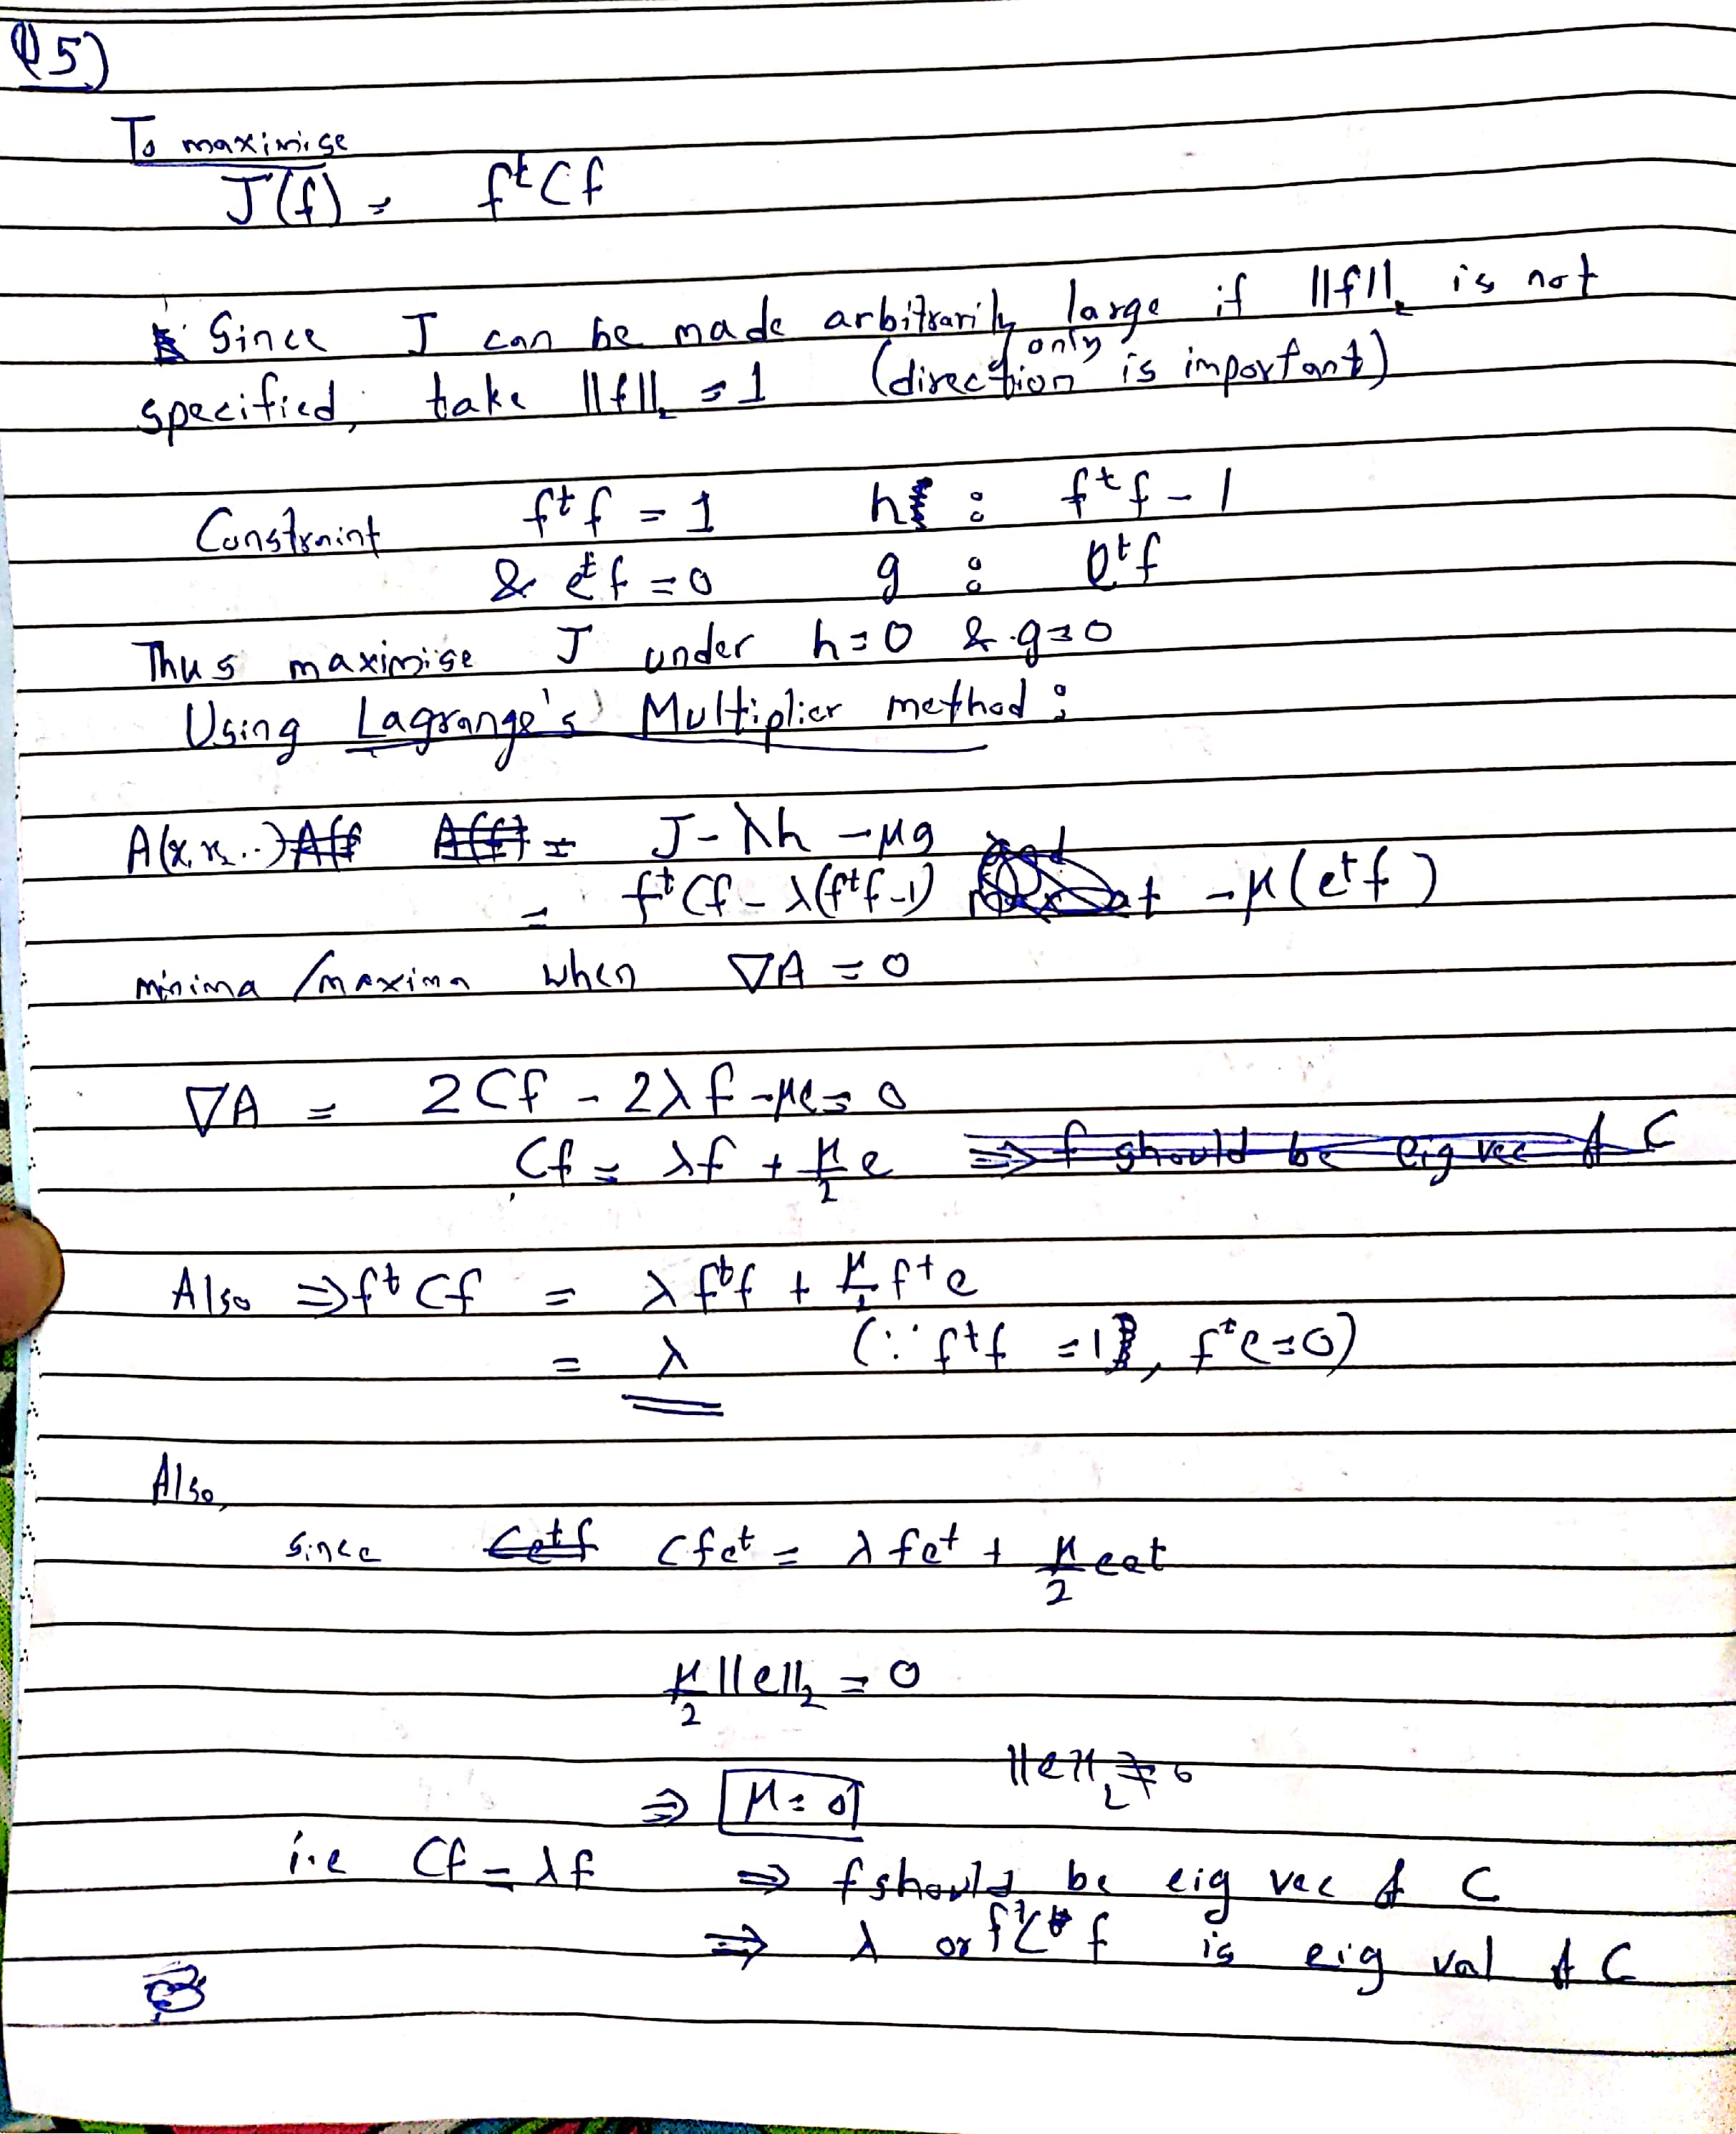 Q5)
To maximise
J(f) = fᵗCf
Since J can be made arbitrarily large if ||f||₂ is not
specified, take ||f||₂ = 1 (direction only is important)
Constraint fᵗf = 1 h : fᵗf - 1
& eᵗf = 0 g : eᵗf
Thus maximise J under h=0 & g=0
Using Lagrange's Multiplier method :
A(x₁ x₂ ..) = J - λh - μg
= fᵗCf - λ(fᵗf-1) - μ(eᵗf)
minima / maxima when ∇A = 0
∇A = 2Cf - 2λf - μe = 0
Cf = λf + μ/2 e ⇒ f should be eig vec of C
Also ⇒ fᵗCf = λfᵗf + μ/2 fᵗe
= λ (∵ fᵗf = 1, fᵗe=0)
Also,
since Cfeᵗ = λfeᵗ + μ/2 eeᵗ
μ/2 ||e||₂ = 0
||e||₂ ≠ 0
⇒ μ = 0
i.e Cf = λf ⇒ f should be eig vec of C
⇒ λ or fᵗCf is eig val of C